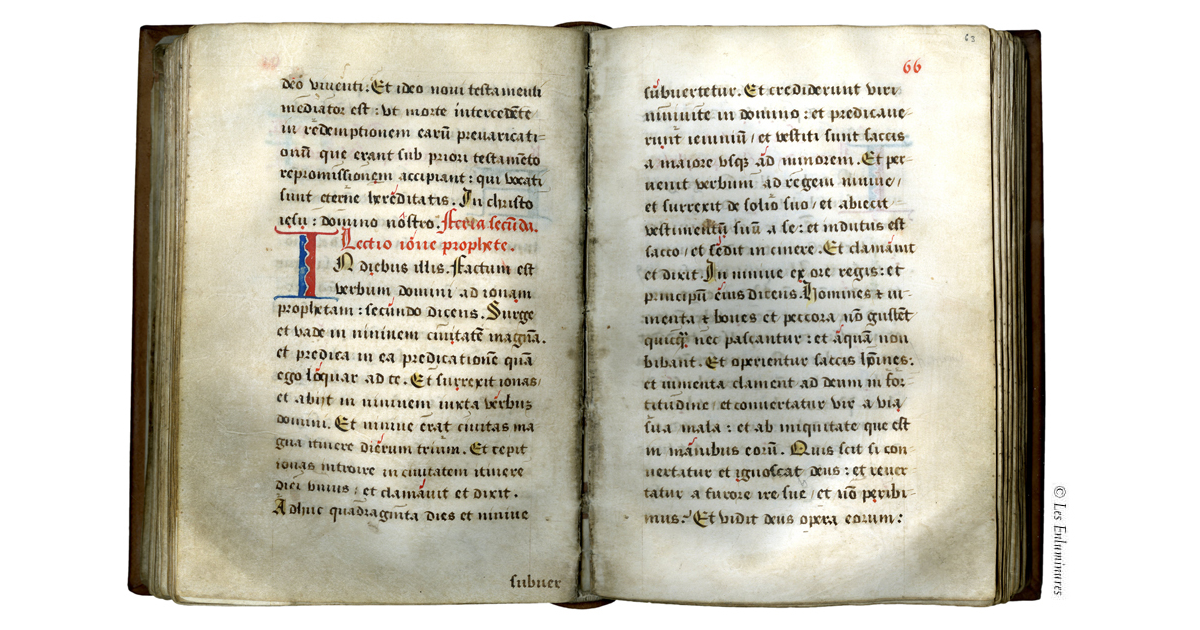 deo viventi. Et ideo novi testamenti
mediator est: ut morte intercedēte
in rēdemptionem earū prevaricati=
onū que erant sub priori testamēto
repromissionem accipiant: qui vocati
sunt eterne hereditatis. In christo
iesu: domino nōstro. Feria secūda.
Lectio ione prophete.
IN diebus illis. Factum est
verbum domini ad ionam
prophetam: secūndo dicens. Surge
et vade in niniuem ciuitatē magnā.
et predica in ea predicationē quā
ego loquar ad te. Et surrexit ionas/
et abijt in niniuem iuxta verbuʒ
domini. Et niniue erat ciuitas ma
gna itinere dierum trium. Et cepit
ionas introire in ciuitatem itinere
diei vnius: et clamauit et dixit.
Adhuc quadraginta dies et niniue
subuer
63
66
subuertetur. Et crediderunt viri
niniuite in domino: et predicaue-
runt ieiuniū/ et vestiti sunt saccis
a maiore vsqʒ ad minorem. Et per-
uenit verbum ad regem niniue/
et surrexit de solio suo/ et abiecit
vestimentū suū a se: et indutus est
sacco/ et sedit in cinere. Et clamauit
et dixit. In niniue ex ore regis: et
principū eius dicens. Homines ⁊ iu-
menta ⁊ boues et peccora nō gustēt
quicqʒ nec pascantur: et aquam non
bibant. Et operientur saccis hoīnes:
et iumenta clament ad deum in for-
titudine/ et conuertatur vir a via
sua mala: et ab iniquitate que est
in manibus eorū. Quis scit si con-
uertatur et ignoscat deus: et reuer
tatur a furore ire sue/ et nō peribi-
mus: Et vidit deus opera eorum:
© Les Enluminures